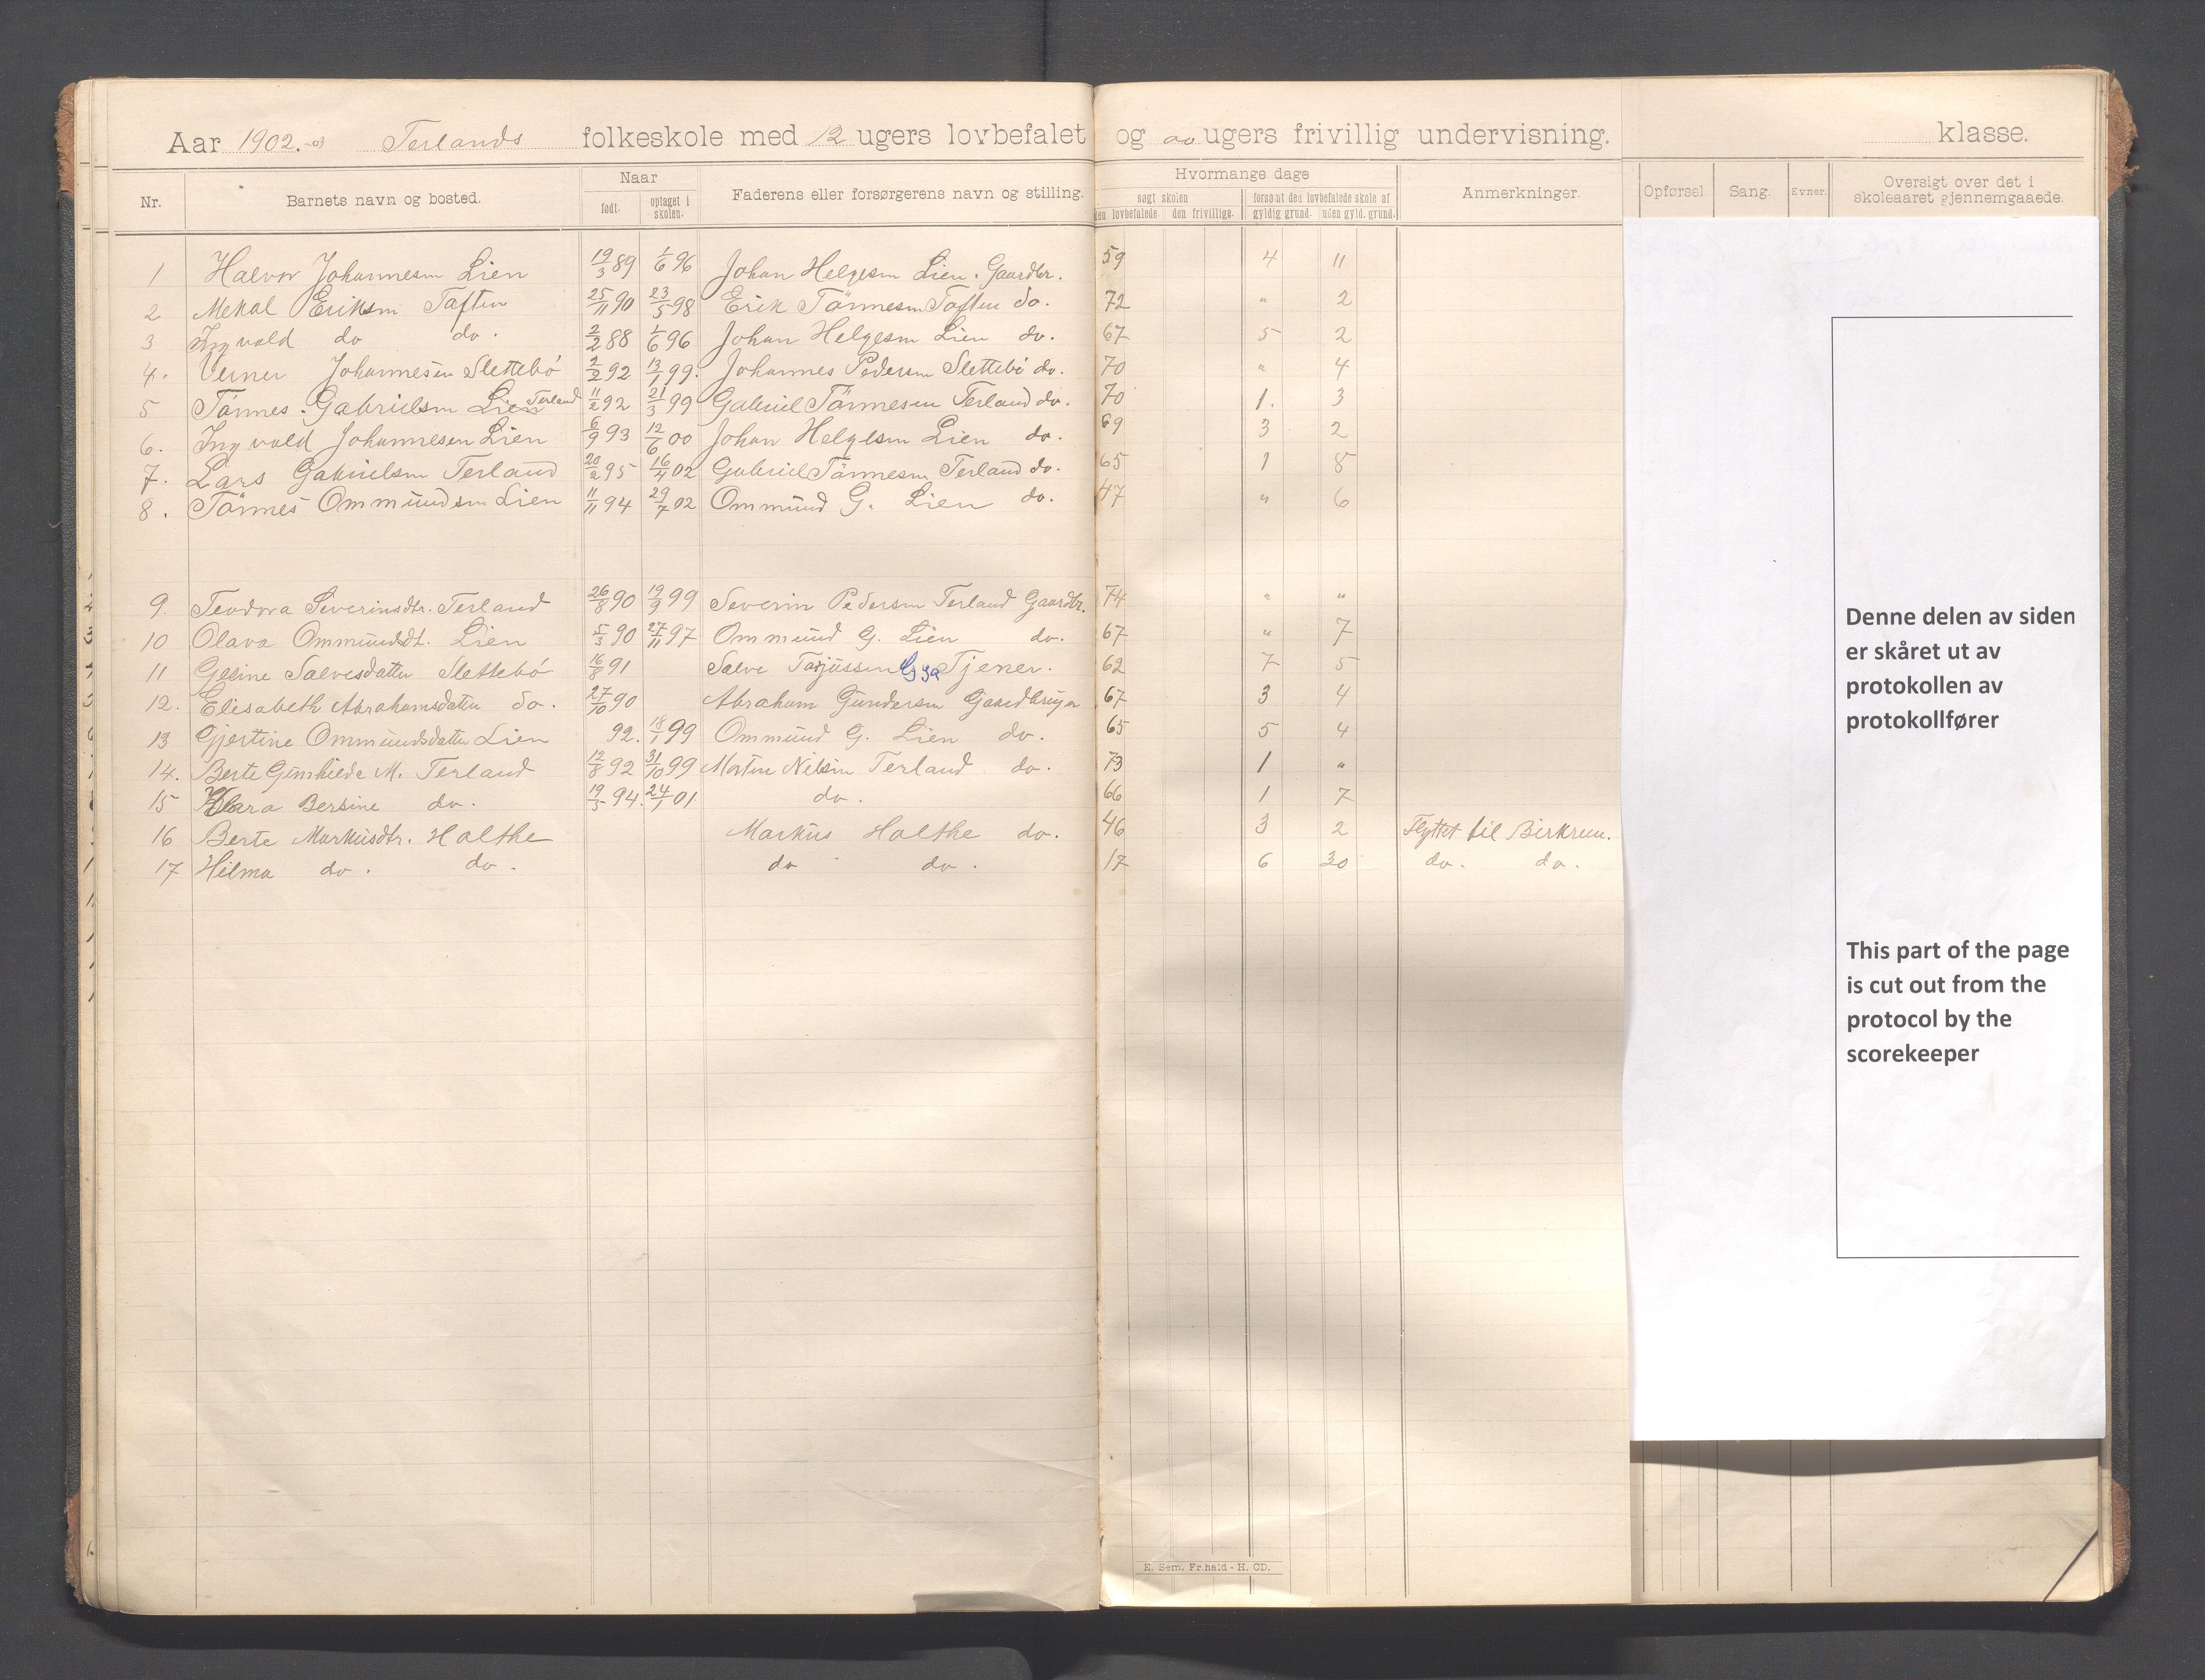 Aar 1902.-03 Terlands folkeskole med 12 ugers lovbefalet og ao ugers frivillig undervisning. klasse.
Nr. Barnets navn og bosted. Naar født. optaget i skolen. Faderens eller forsørgerens navn og stilling. Hvormange dage søgt skolen den lovbefalede den frivillige. forsømt den lovbefalede skole af gyldig grund. uden gyld. grund. Anmerkninger. Opførsel Sang. Evner. Oversigt over det i skoleaaret gjennemgaaede.
1 Halvor Johannesen Lien 19/3 89 1/6 96 Johan Helgesen Lien. Gaardbr. 59 4 11
2 Mekal Eriksen Taften 25/11 90 23/5 98 Erik Tönnesen Taften do. 72 " 2
3 Ingvald do do. 2/2 88 1/6 96 Johan Helgesen Lien do. 67 5 2
4. Verner Johannesen Slettebö 2/2 92 13/1 99. Johannes Pedersen Slettebö do. 70 " 4
5 Tönnes Gabrielsen Lien Terland 11/2 92 21/3 99 Gabriel Tönnesen Terland do. 70 1. 3
6. Ingvald Johannesen Lien 6/9 93 12/6 00 Johan Helgesen Lien do. 69 3 2
7. Lars Gabrielsen Terland 20/2 95 16/4 02 Gabriel Tönnesen Terland do. 65 1 8
8. Tönnes Ommundsen Lien 11/11 94 29/7 02 Ommund G. Lien do. 47 " 6
9. Teodora Severinsdtr. Terland 26/8 90 19/9 99 Severin Pedersen Terland Gaardbr. 74 " "
10 Olava Ommundsdt. Lien 5/3 90 27/11 97 Ommund G. Lien do. 67 " 7
11 Gesine Salvesdatter Slettebö 16/8 91 Salve Tarjussen Gya Tjener. 62 7 5
12. Elisabeth Abrahamsdatter do. 27/10 90 Abraham Gundersen Gaardbruger 67 3 4
13 Gjertine Ommundsdatter Lien 92. 18/1 99 Ommund G. Lien do. 65 5 4
14. Berte Gunhilde M. Terland 12/8 92 31/10 99 Morten Nilsen Terland do. 73 1 "
15 Klara Bersine do. 19/5 94. 24/1 01 do. 66 1 7
16 Berte Markusdtr. Holthe Markus Holthe do. 46 3 2 Flyttet til Birkrem.
17 Hilma do. do. do do. 17 6 30 do. do.
E. Sem. Fr.hald - H. CD.
Denne delen av siden
er skåret ut av
protokollen av
protokollfører
This part of the page
is cut out from the
protocol by the
scorekeeper